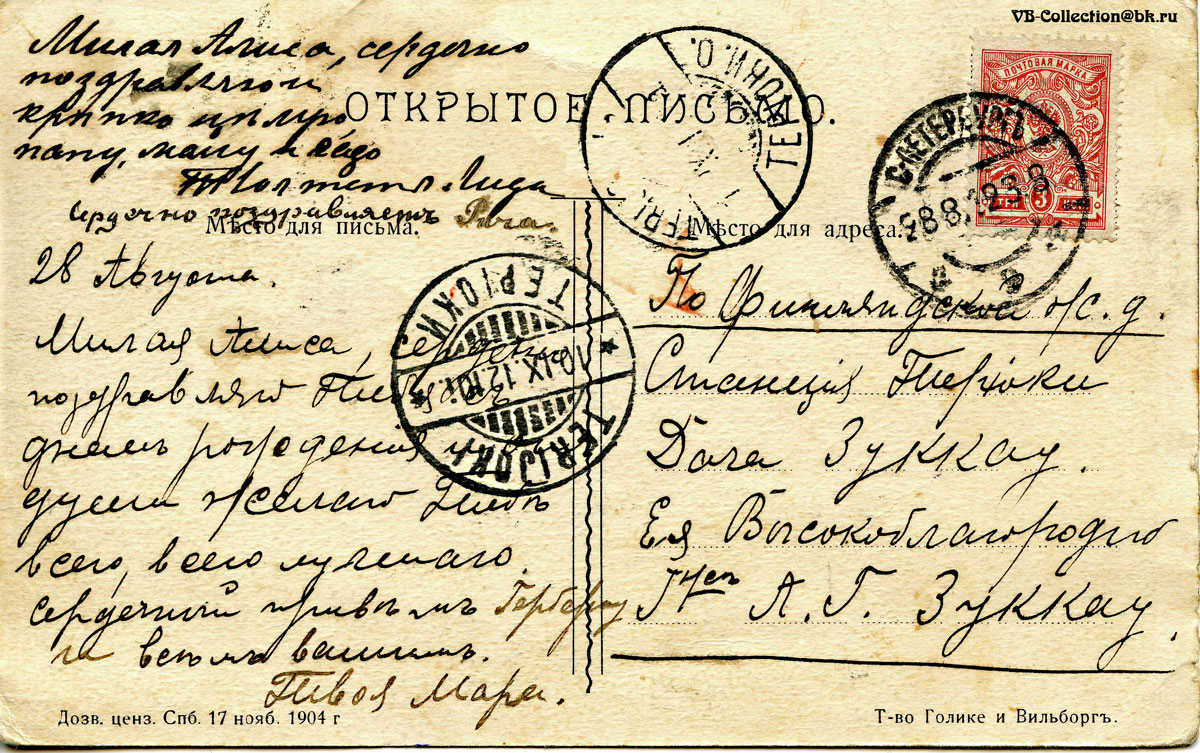 VB-Collection@bk.ru
Милая Алиса, сердечно
поздравляю и
крепко целую
папу, маму и
Твоя тетя Лида
Сердечно поздравляетъ
ОТКРЫТОЕ ПИСЬМО.
Мѣсто для письма.
28 Августа.
Милая Алиса, сердечно
поздравляю Тебя съ
днемъ рожденія и отъ
души желаю Тебѣ
всего, всего лучшаго.
Сердечный привѣтъ
и всѣмъ вашимъ.
Твоя Мара.
Дозв. ценз. Спб. 17 нояб. 1904 г
ПОЧТОВАЯ МАРКА
3
С.ПЕТЕРБУРГЪ
TERIJOKI
ТЕРІОКИ
10.IX.12
Мѣсто для адреса.
По Финляндской ж. д.
Станція Теріоки
Дача Зуккау.
Ея Высокоблагородію
Г-жѣ А. Г. Зуккау.
Т-во Голике и Вильборгъ.